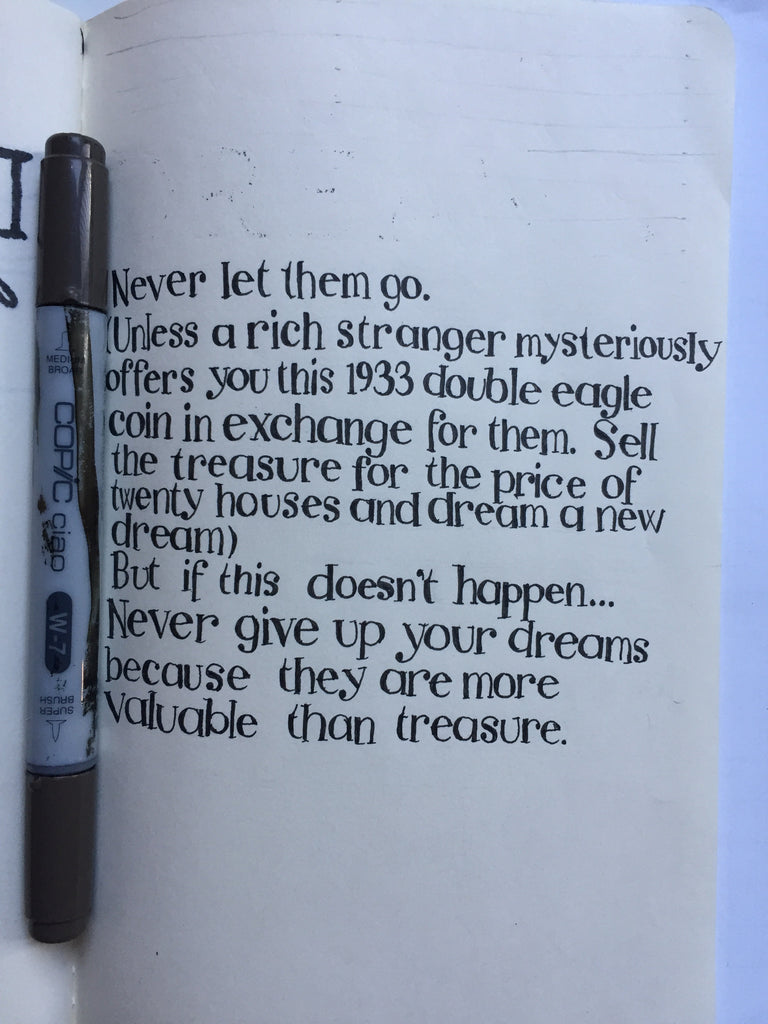 Never let them go.
(Unless a rich stranger mysteriously
offers you this 1933 double eagle
coin in exchange for them. Sell
the treasure for the price of
twenty houses and dream a new
dream)
But if this doesn't happen...
Never give up your dreams
because they are more
valuable than treasure.
COPIC ciao
W-7
SUPER
BRUSH